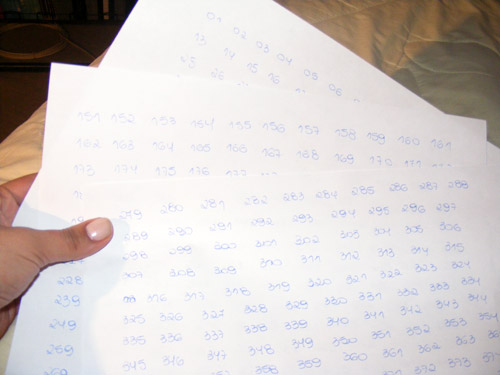 01 02 03 04 05 06
13 14 15 16
25 26
151 152 153 154 155 156 157 158 159 160 161
162 163 164 165 166 167 168 169 170
173 174 175 176
279 280 281 282 283 284 285 286 287 288
289 290 291 292 293 294 295 296 297
298 299 300 301 302 303 304 305 306
307 308 309 310 311 312 313 314 315
228
316 317 318 319 320 321 322 323 324
239
325 326 327 328 329 330 331 332 333 334
249
335 336 337 338 339 340 341 342 343 344
259
345 346 347 348 349 350 351 352 353 354
269
358 359 360 361 362 363
371 372 373